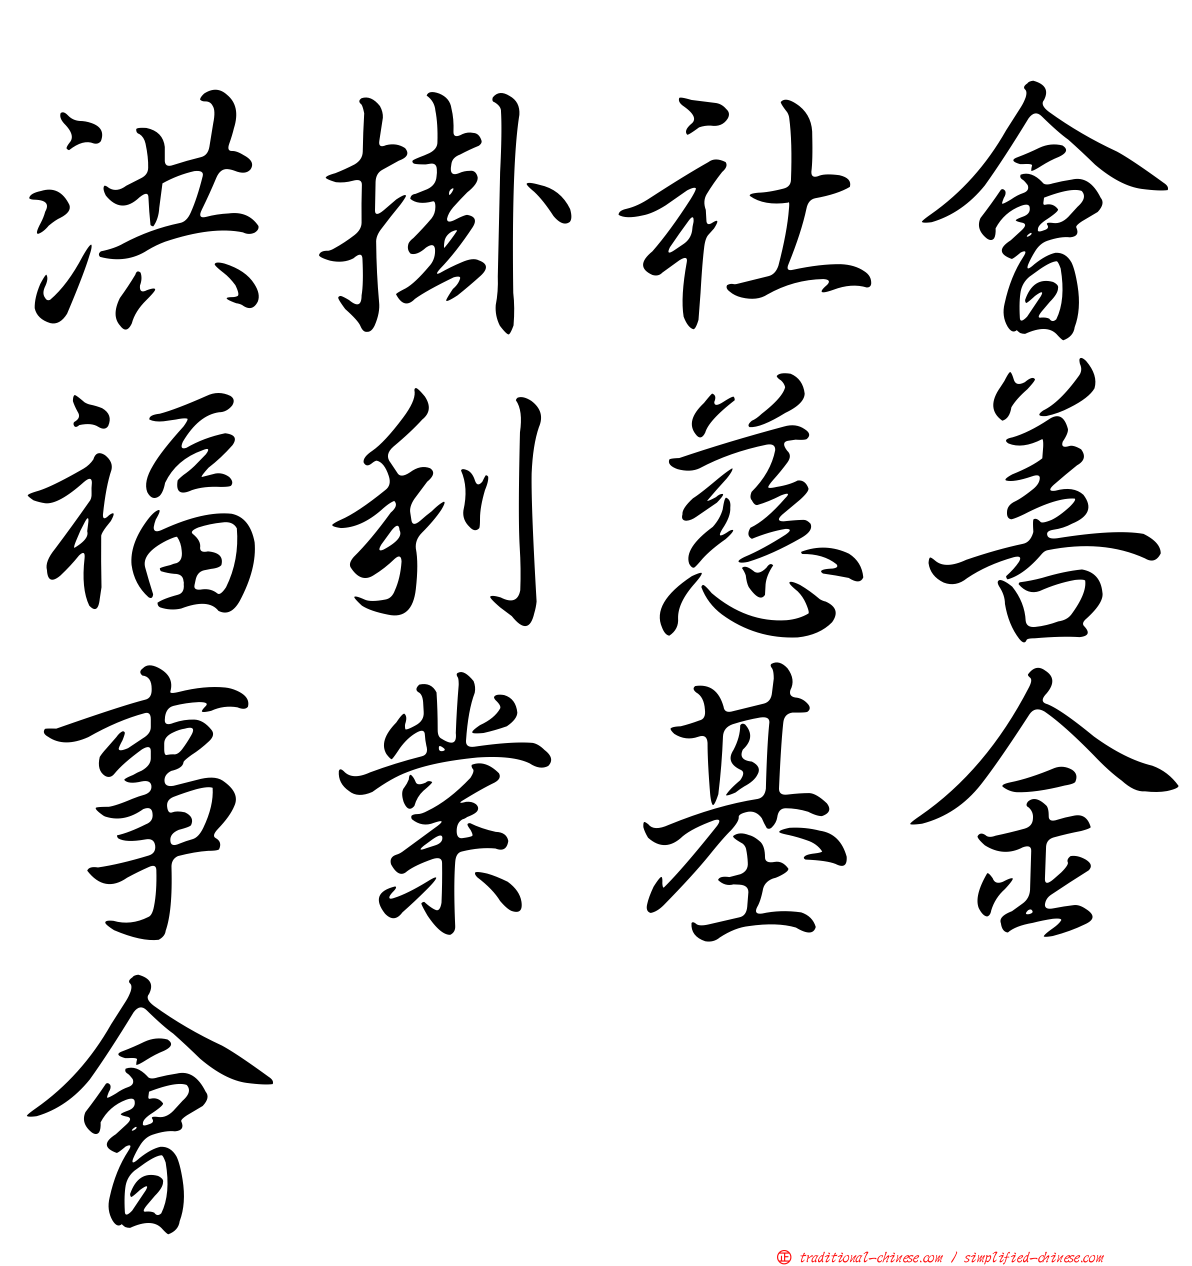 洪掛社會
福利慈善
事業基金
會
正 traditional-chinese.com / simplified-chinese.com